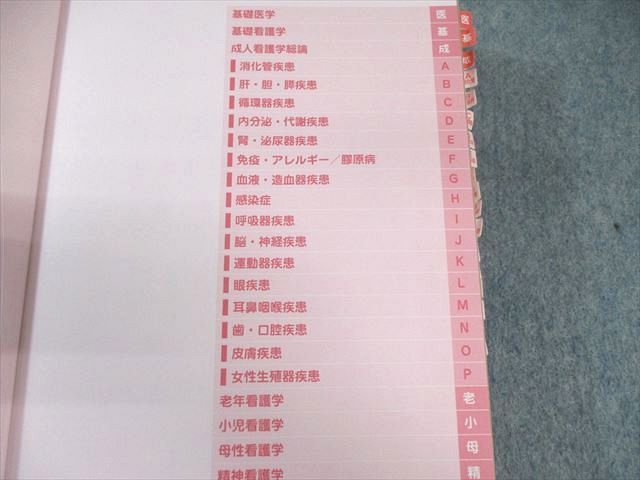 基礎医学 医
基礎看護学 基
成人看護学総論 成
消化管疾患 A
肝・胆・膵疾患 B
循環器疾患 C
内分泌・代謝疾患 D
腎・泌尿器疾患 E
免疫・アレルギー／膠原病 F
血液・造血器疾患 G
感染症 H
呼吸器疾患 I
脳・神経疾患 J
運動器疾患 K
眼疾患 L
耳鼻咽喉疾患 M
歯・口腔疾患 N
皮膚疾患 O
女性生殖器疾患 P
老年看護学 老
小児看護学 小
母性看護学 母
精神看護学 精
医
基
成
A